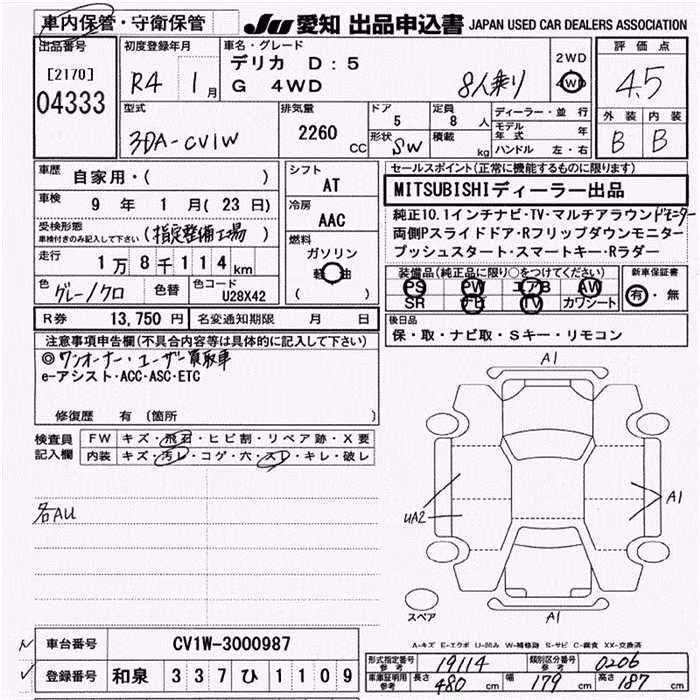 車内保管・守衛保管 JU 愛知 出品申込書 JAPAN USED CAR DEALERS ASSOCIATION
出品番号
[2170]
04333
初度登録年月
R4 1月
車名・グレード
デリカ D:5
G 4WD 8人乗り
2WD
4WD
評価点
4.5
外装 内装
B B
型式
3DA-CV1W
排気量
2260 CC
ドア
5
形状
SW
定員
8 人
積載
kg
ディーラー・並行
モデル年式 年
ハンドル 左・右
車歴
自家用・( )
車検
9 年 1 月 (23 日)
受検形態
車検付きのみ記入して下さい
(指定整備工場)
走行
1万8千114km
色
グレー/クロ
色替
色コード
U28X42
シフト
AT
冷房
AAC
燃料
ガソリン
軽油
( )
R券 13,750円 名変通知期限 月 日
セールスポイント(正常に機能するものに限ります)
MITSUBISHIディーラー出品
純正10.1インチナビ・TV・マルチアラウンドモニター
両側Pスライドドア・Rフリップダウンモニター
プッシュスタート・スマートキー・Rラダー
装備品(純正品に限り○をつけてください)
PS PW エアB AW
SR ナビ TV カワシート
新車保証書
有・無
後日品
保・取・ナビ取・Sキー・リモコン
注意事項申告欄(不具合内容等は具体的に記入して下さい)
◎ワンオーナー・ユーザー買取車
e-アシスト・ACC・ASC・ETC
修復歴 有 (箇所 )
検査員記入欄
FW キズ・飛石・ヒビ割・リペア跡・X要
内装 キズ・汚レ・コゲ・穴・スレ・キレ・破レ
各AU
A1
UA2
A1
A1
スペア
A-キズ E-エクボ U-凹み W-補修跡 S-サビ C-腐食 XX-交換済
車台番号 CV1W-3000987
登録番号 和泉 337 ひ 1109
型式指定番号 参考 19114 類別区分番号 参考 0206
車庫証明用 参考 長さ 480 cm 幅 179 cm 高さ 187 cm